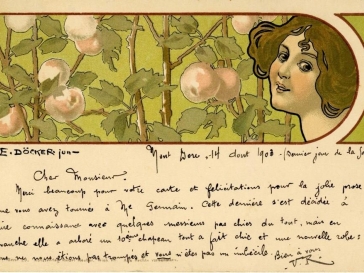 E. DÖCKER jun—
Mont Dore. 14 Aout 1903 — (Dernier jour de la
Cher Monsieur.
Merci beaucoup pour votre carte et félicitations pour la jolie prose
que vous avez tournée à Me Germain. Cette dernière s'est décidée à
connaissance avec quelques messieurs pas chics du tout, mais en
elle a arboré un chapeau tout a fait chic et une nouvelle robe
nous étions pas trompés et vous n'êtes pas un imbécile. Bien à vous